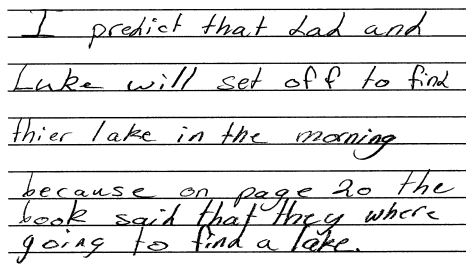 I predict that dad and
Luke will set off to find
thier lake in the morning
because on page 20 the
book said that they where
going to find a lake.